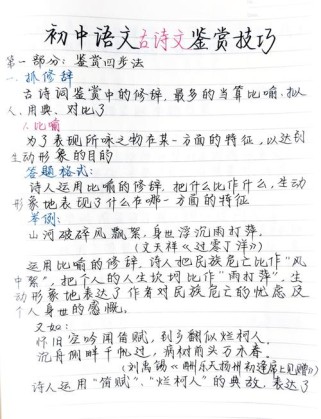 初中语文古诗文鉴赏技巧
第一部分：鉴赏四步法
一、抓修辞
古诗词鉴赏中的修辞，最多的当算比喻、拟
人、用典、对比了
1.比喻
为了表现所咏之物在某一方面的特征，以达到
生动形象的目的
答题格式：
诗人运用比喻的修辞，把什么比作什么，生动
形象地表现了什么在哪一方面的特征
举例：
山河破碎风飘絮，身世浮沉雨打萍。
（文天祥《过零丁洋》）
运用比喻的修辞。诗人把民族危亡比作“风
中絮”，把个人的人生坎坷比作“雨打萍”，生
动形象地表达了作者对民族危亡的忧虑及
个人身世的感慨。
又如：
怀旧空吟闻笛赋，到乡翻似烂柯人。
沉舟侧畔千帆过，病树前头万木春。
（刘禹锡《酬乐天扬州初逢席上见赠》）
诗人运用“笛赋”、“烂柯人”的典故，表达了